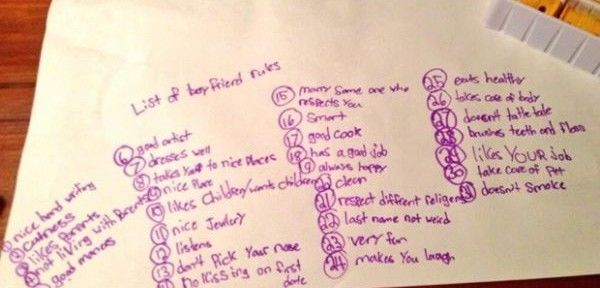 List of boyfriend rules
① nice hand writing
② cutness
③ likes Parents
④ not living with Parents
⑤ good maners
⑥ good artist
⑦ dresses well
⑧ takes You to nice Places
⑨ nice Place
⑩ likes Children/wants children
⑪ nice Jewlery
⑫ listens
⑬ don't Pick Your nose
⑭ no Kissing on first
date
⑮ marry some one who
respects You
⑯ Smart
⑰ good cook
⑱ has a good job
⑲ always happy
⑳ clean
㉑ respect diffrent religens
㉒ last name not weird
㉓ very fun
㉔ makes You laugh
㉕ eats healthy
㉖ takes care of body
㉗ doesnt tattletale
㉘ brushes teeth and Floss
㉙ likes YOUR job
㉚ take care of Pet
㉛ doesn't Smoke